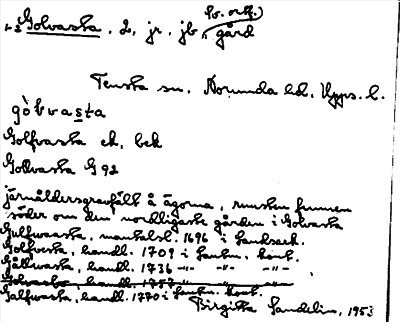 1-2 Golvasta. 2, jr, jb, gård
(sv. ortn.)
Tensta sn. Norunda hd. Upps. l.
gòlvasta
Golfvasta ek, bek
Golvasta G 92
Järnåldersgravfält å ägorna, runsten funnen
söder om den nordligaste gården i Golvasta
Gulfwaasta, mantalsl. 1696 i landsark.
Golfvesta, handl. 1709 i lantm. kont.
Gållwasta, handl. 1736 -"- -"- -"-
Golvasta, handl. 1757 -"- -"- -"-
Galfwasta, handl. 1770 i lantm. kont.
Birgitta Sandelin, 1953